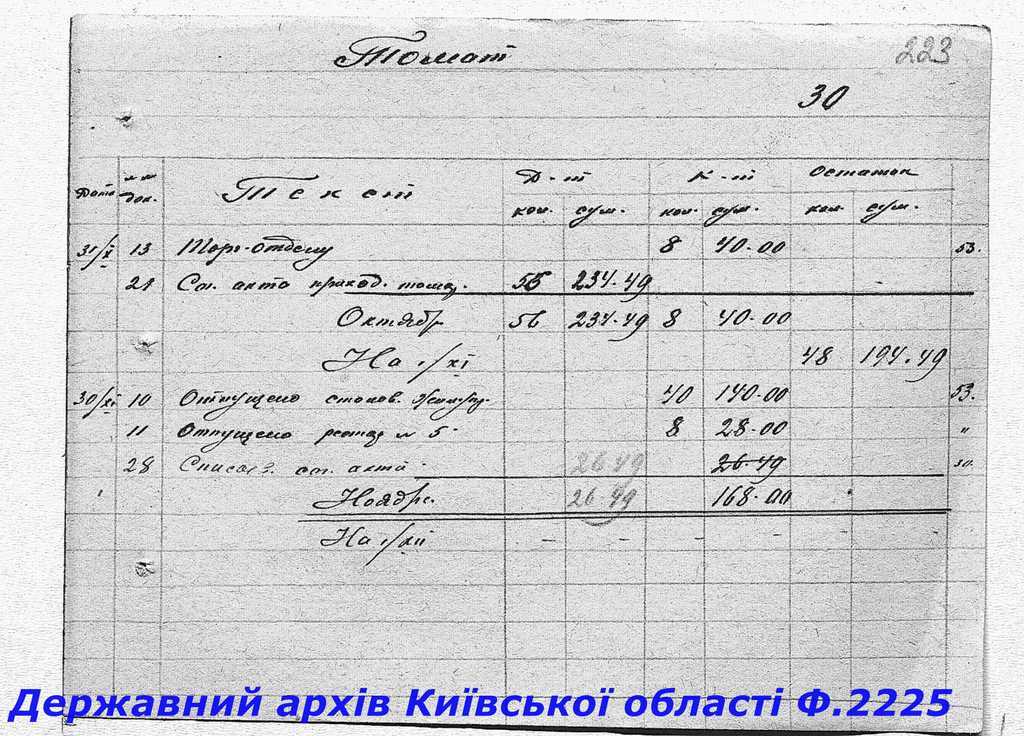 Томат
223
30
Дата
№№ док.
Текст
Д-т
К-т
Остаток
кол. сум. кол. сум. кол. сум.
31/X 13 Торг-отделу 8 40-00 53.
21 См. акта приход. томат. 56 234-49
Октябрь 56 234-49 8 40-00
На 1/XI 48 194-49
30/XI 10 Отпущено столов. 40 140-00 53.
11 Отпущено рестор № 5 8 28-00 "
28 Списан. см. акта 26-49 26-49 30.
Ноябрь 26-49 168-00
На 1/XII - - - - - -
Державний архів Київської області Ф.2225